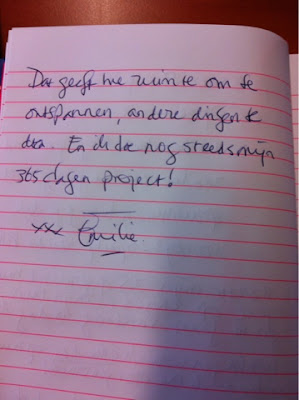 Dat geeft me ruimte om te
ontspannen, andere dingen te
doen. En ik doe nog steeds mijn
365 dagen project!
xxx Emilie.